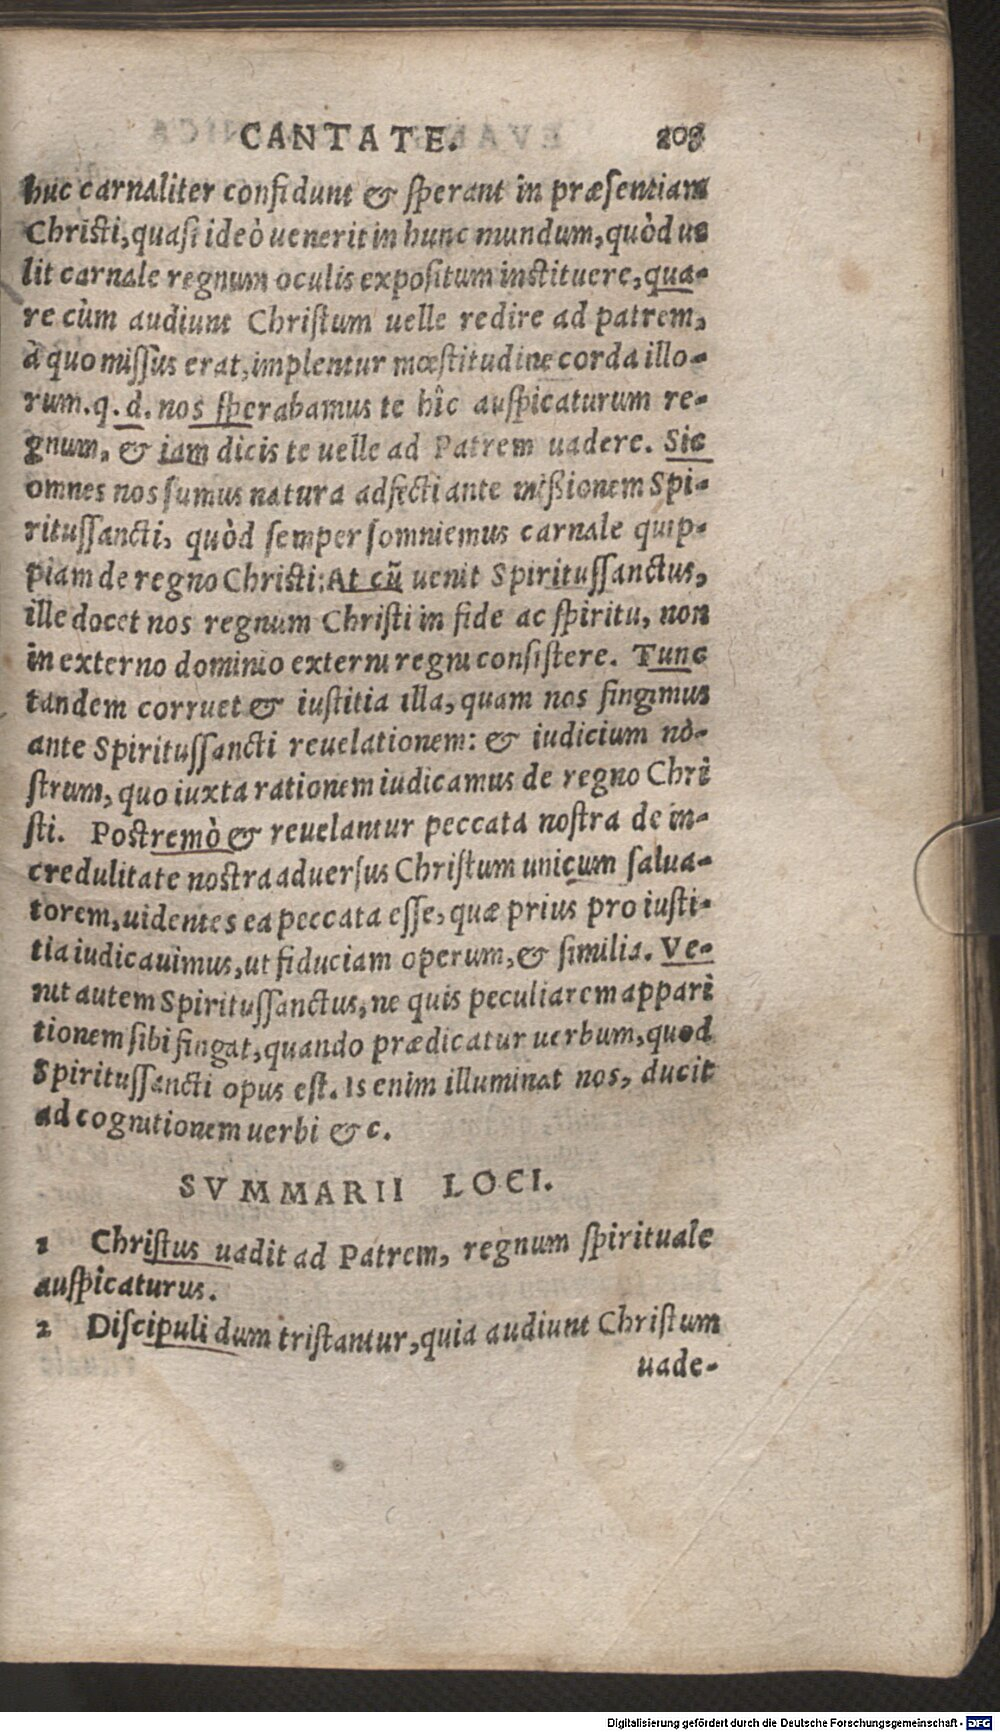 CANTATE. 203
huc carnaliter confidunt & sperant in præsentiam
Christi, quasi ideò uenerit in hunc mundum, quòd ue
lit carnale regnum oculis expositum instituere, qua-
re cùm audiunt Christum uelle redire ad patrem,
à quo missus erat, implentur mœstitudine corda illo-
rum. q. d. nos sperabamus te hîc auspicaturum re-
gnum, & iam dicis te uelle ad Patrem uadere. Sic
omnes nos sumus natura adfecti ante mißionem Spi-
ritussancti, quòd semper somniemus carnale quip-
piam de regno Christi: At cũ uenit Spiritussanctus,
ille docet nos regnum Christi in fide ac spiritu, non
in externo dominio externi regni consistere. Tunc
tandem corruet & iustitia illa, quam nos fingimus
ante Spiritussancti reuelationem: & iudicium no-
strum, quo iuxta rationem iudicamus de regno Chri
sti. Postremò & reuelantur peccata nostra de in-
credulitate nostra aduersus Christum unicum salua-
torem, uidentes ea peccata esse, quæ prius pro iusti-
tia iudicauimus, ut fiduciam operum, & similia. Ve-
nit autem Spiritussanctus, ne quis peculiarem appari
tionem sibi fingat, quando prædicatur uerbum, quod
Spiritussancti opus est. Is enim illuminat nos, ducit
ad cognitionem uerbi & c.
SVMMARII LOCI.
1 Christus uadit ad Patrem, regnum spirituale
auspicaturus.
2 Discipuli dum tristantur, quia audiunt Christum
uade-
Digitalisierung gefördert durch die Deutsche Forschungsgemeinschaft - DFG